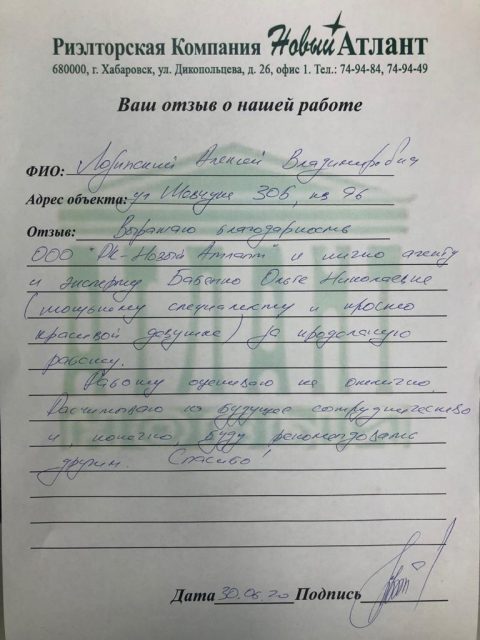 Риэлторская Компания Новый Атлант
680000, г. Хабаровск, ул. Дикопольцева, д. 26, офис 1. Тел.: 74-94-84, 74-94-49
Ваш отзыв о нашей работе
ФИО: Алексей Владимирович
Адрес объекта: ул 30в, кв 96
Отзыв: Выражаю благодарность
ООО "РК-Новый Атлант" и лично агенту
и эксперту Бабенко Ольге Николаевне
(мощьному специалисту и просто
красивой девушке) за проделаную
работу.
Работу оцениваю на отлично.
Расчитываю на будущее сотрудничество
и, конечно, буду рекомендовать
другим. Спасибо!
Дата 30.06.20 Подпись